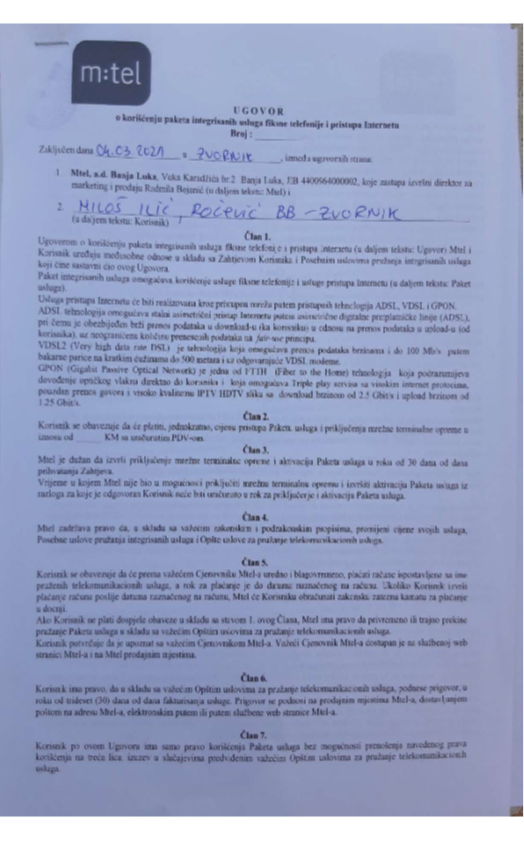 m:tel
UGOVOR
o korišćenju paketa integrisanih usluga fiksne telefonije i pristupa Internetu
Broj :
Zaključen dana 04.03 2021 u ZVORNIK, između ugovornih strana:
1. Mtel, a.d. Banja Luka, Vuka Karadžića br.2 Banja Luka, JIB 4400964000002, koje zastupa izvršni direktor za
marketing i prodaju (u daljem tekstu: Mtel) i
2. MILOŠ ILIĆ, ROĆEVIĆ BB - ZVORNIK
(u daljem tekstu: Korisnik)
Član 1.
Ugovorom o korišćenju paketa integrisanih usluga fiksne telefonije i pristupa Internetu (u daljem tekstu: Ugovor) Mtel i
Korisnik uređuju međusobne odnose u skladu sa Zahtjevom Korisnika i Posebnim uslovima pružanja integrisanih usluga
koji čine sastavni dio ovog Ugovora.
Paket integrisanih usluga omogućava korišćenje usluge fiksne telefonije i usluge pristupa Internetu (u daljem tekstu: Paket
usluga).
Usluga pristupa Internetu će biti realizovana kroz pristupnu mrežu putem pristupnih tehnologija ADSL, VDSL i GPON.
ADSL tehnologija omogućava stalni asimetrični pristup Internetu putem asimetrične digitalne pretplatničke linije (ADSL),
pri čemu je obezbijeđen brži prenos podataka u download-u (ka korisniku) u odnosu na prenos podataka u upload-u (od
korisnika), uz neograničenu količinu prenesenih podataka na fair-use principu.
VDSL2 (Very high data rate DSL) je tehnologija koja omogućava prenos podataka brzinama i do 100 Mb/s putem
bakarne parice na kratkim dužinama do 500 metara i uz odgovarajuće VDSL modeme.
GPON (Gigabit Passive Optical Network) je jedna od FTTH (Fiber to the Home) tehnologija koja podrazumijeva
dovođenje optičkog vlakna direktno do korisnika i koja omogućava Triple play servise sa visokim internet protocima,
pouzdan prenos govora i visoko kvalitetnu IPTV HDTV sliku sa download brzinom od 2.5 Gbit/s i upload brzinom od
1.25 Gbit/s.
Član 2.
Korisnik se obavezuje da će platiti, jednokratno, cijenu pristupa Paketu usluga i priključenja mrežne terminalne opreme u
iznosu od KM sa uračunatim PDV-om.
Član 3.
Mtel je dužan da izvrši priključenje mrežne terminalne opreme i aktivaciju Paketa usluga u roku od 30 dana od dana
prihvatanja Zahtjeva.
Vrijeme u kojem Mtel nije bio u mogućnosti priključiti mrežnu terminalnu opremu i izvršiti aktivaciju Paketa usluga iz
razloga za koje je odgovoran Korisnik neće biti uračunato u rok za priključenje i aktivaciju Paketa usluga.
Član 4.
Mtel zadržava pravo da, u skladu sa važećim zakonskim i podzakonskim propisima, promijeni cijene svojih usluga,
Posebne uslove pružanja integrisanih usluga i Opšte uslove za pružanje telekomunikacionih usluga.
Član 5.
Korisnik se obavezuje da će prema važećem Cjenovniku Mtel-a uredno i blagovremeno, plaćati račune ispostavljene na ime
pruženih telekomunikacionih usluga, a rok za plaćanje je do datuma naznačenog na računu. Ukoliko Korisnik izvrši
plaćanje računa poslije datuma naznačenog na računu, Mtel će Korisniku obračunati zakonsku zateznu kamatu za plaćanje
u docnji.
Ako Korisnik ne plati dospjele obaveze u skladu sa stavom 1. ovog Člana, Mtel ima pravo da privremeno ili trajno prekine
pružanje Paketa usluga u skladu sa važećim Opštim uslovima za pružanje telekomunikacionih usluga.
Korisnik potvrđuje da je upoznat sa važećim Cjenovnikom Mtel-a. Važeći Cjenovnik Mtel-a dostupan je na službenoj web
stranici Mtel-a i na Mtel prodajnim mjestima.
Član 6.
Korisnik ima pravo, da u skladu sa važećim Opštim uslovima za pružanje telekomunikacionih usluga, podnese prigovor, u
roku od trideset (30) dana od dana fakturisanja usluge. Prigovor se podnosi na prodajnim mjestima Mtel-a, dostavljanjem
poštom na adresu Mtel-a, elektronskim putem ili putem službene web stranice Mtel-a.
Član 7.
Korisnik po ovom Ugovoru ima samo pravo korišćenja Paketa usluga bez mogućnosti prenošenja navedenog prava
korišćenja na treća lica, izuzev u slučajevima predviđenim važećim Opštim uslovima za pružanje telekomunikacionih
usluga.